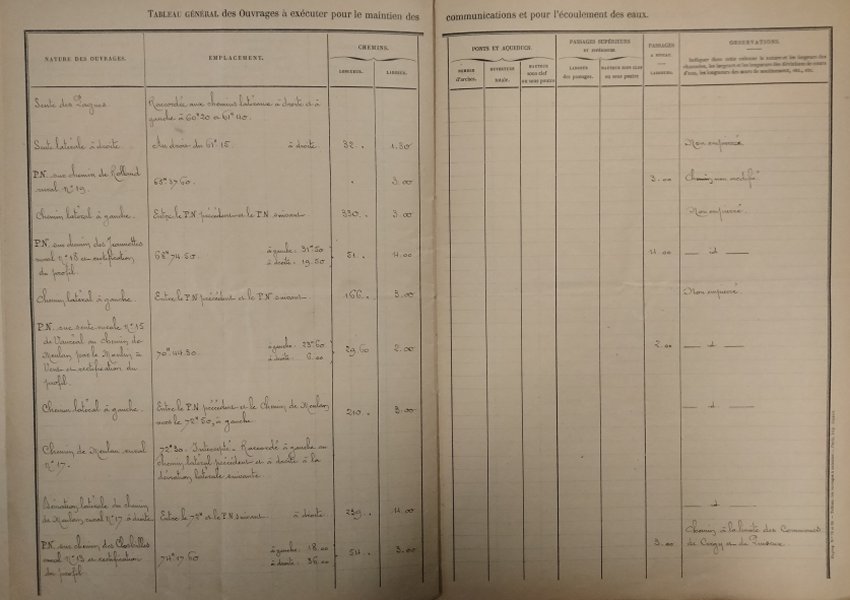 TABLEAU GÉNÉRAL des Ouvrages à exécuter pour le maintien des communications et pour l'écoulement des eaux.
NATURE DES OUVRAGES. EMPLACEMENT. CHEMINS. LONGUEUR. LARGEUR.
PONTS ET AQUEDUCS. NOMBRE d'arches. OUVERTURE totale. HAUTEUR sous clef ou sous poutre
PASSAGES SUPÉRIEURS ET INFÉRIEURS. LARGEUR des passages. HAUTEUR SOUS CLEF ou sous poutre
PASSAGES A NIVEAU. LARGEUR.
OBSERVATIONS.
Indiquer dans cette colonne la nature et les largeurs des chaussées, les largeurs et les longueurs des déviations de cours d'eau, les longueurs des murs de soutènement, etc., etc.
Sente des Raccordée aux chemins latéraux à droite et à
gauche à 60 20 et 61 40.
Sente latérale à droite. Au droit du 61 15. à droite 32. 1.50 Non empierré
P.N. sur chemin de Rolland
rural N° 19. 63 37.60 . 3.00 3.00 Chemin non modifié
Chemin latéral à gauche. Entre le P.N. précédent et le P.N. suivant 330. 3.00 Non empierré.
P.N. sur chemin des Jeannettes
rural N° 18 et rectification
du profil. 68 74.50 à gauche 31.50
à droite 19.50 51. 4.00 4.00 — id —
Chemin latéral à gauche. Entre le P.N. précédent et le P.N. suivant. 166. 3.00 Non empierré
P.N. sur sente rurale N° 15
de Vauréal au chemin de
Meulan par le Moulin à
Vent et rectification du
profil. 70 44.30 à gauche 23.60
à droite 6.00 29.60 2.00 2.00 — d —
Chemin latéral à gauche. Entre le P.N. précédent et le Chemin de Meulan
vers le 72 50, à gauche 210. 3.00 — d —
Chemin de Meulan rural
N° 17. 72 30. Intercepté. Raccordé à gauche au
chemin latéral précédent et à droite à la
déviation latérale suivante
Déviation latérale du chemin
de Meulan, rural N° 17 à droite. Entre le 72 et le P.N. suivant à droite 239. 4.00 — d —
P.N. sur chemin des
rural N° 13 et rectification
du profil 74 17.60 à gauche 18.00
à droite 36.00 54. 3.00 3.00 Chemin à la limite des Communes
de Cergy et de Puiseux